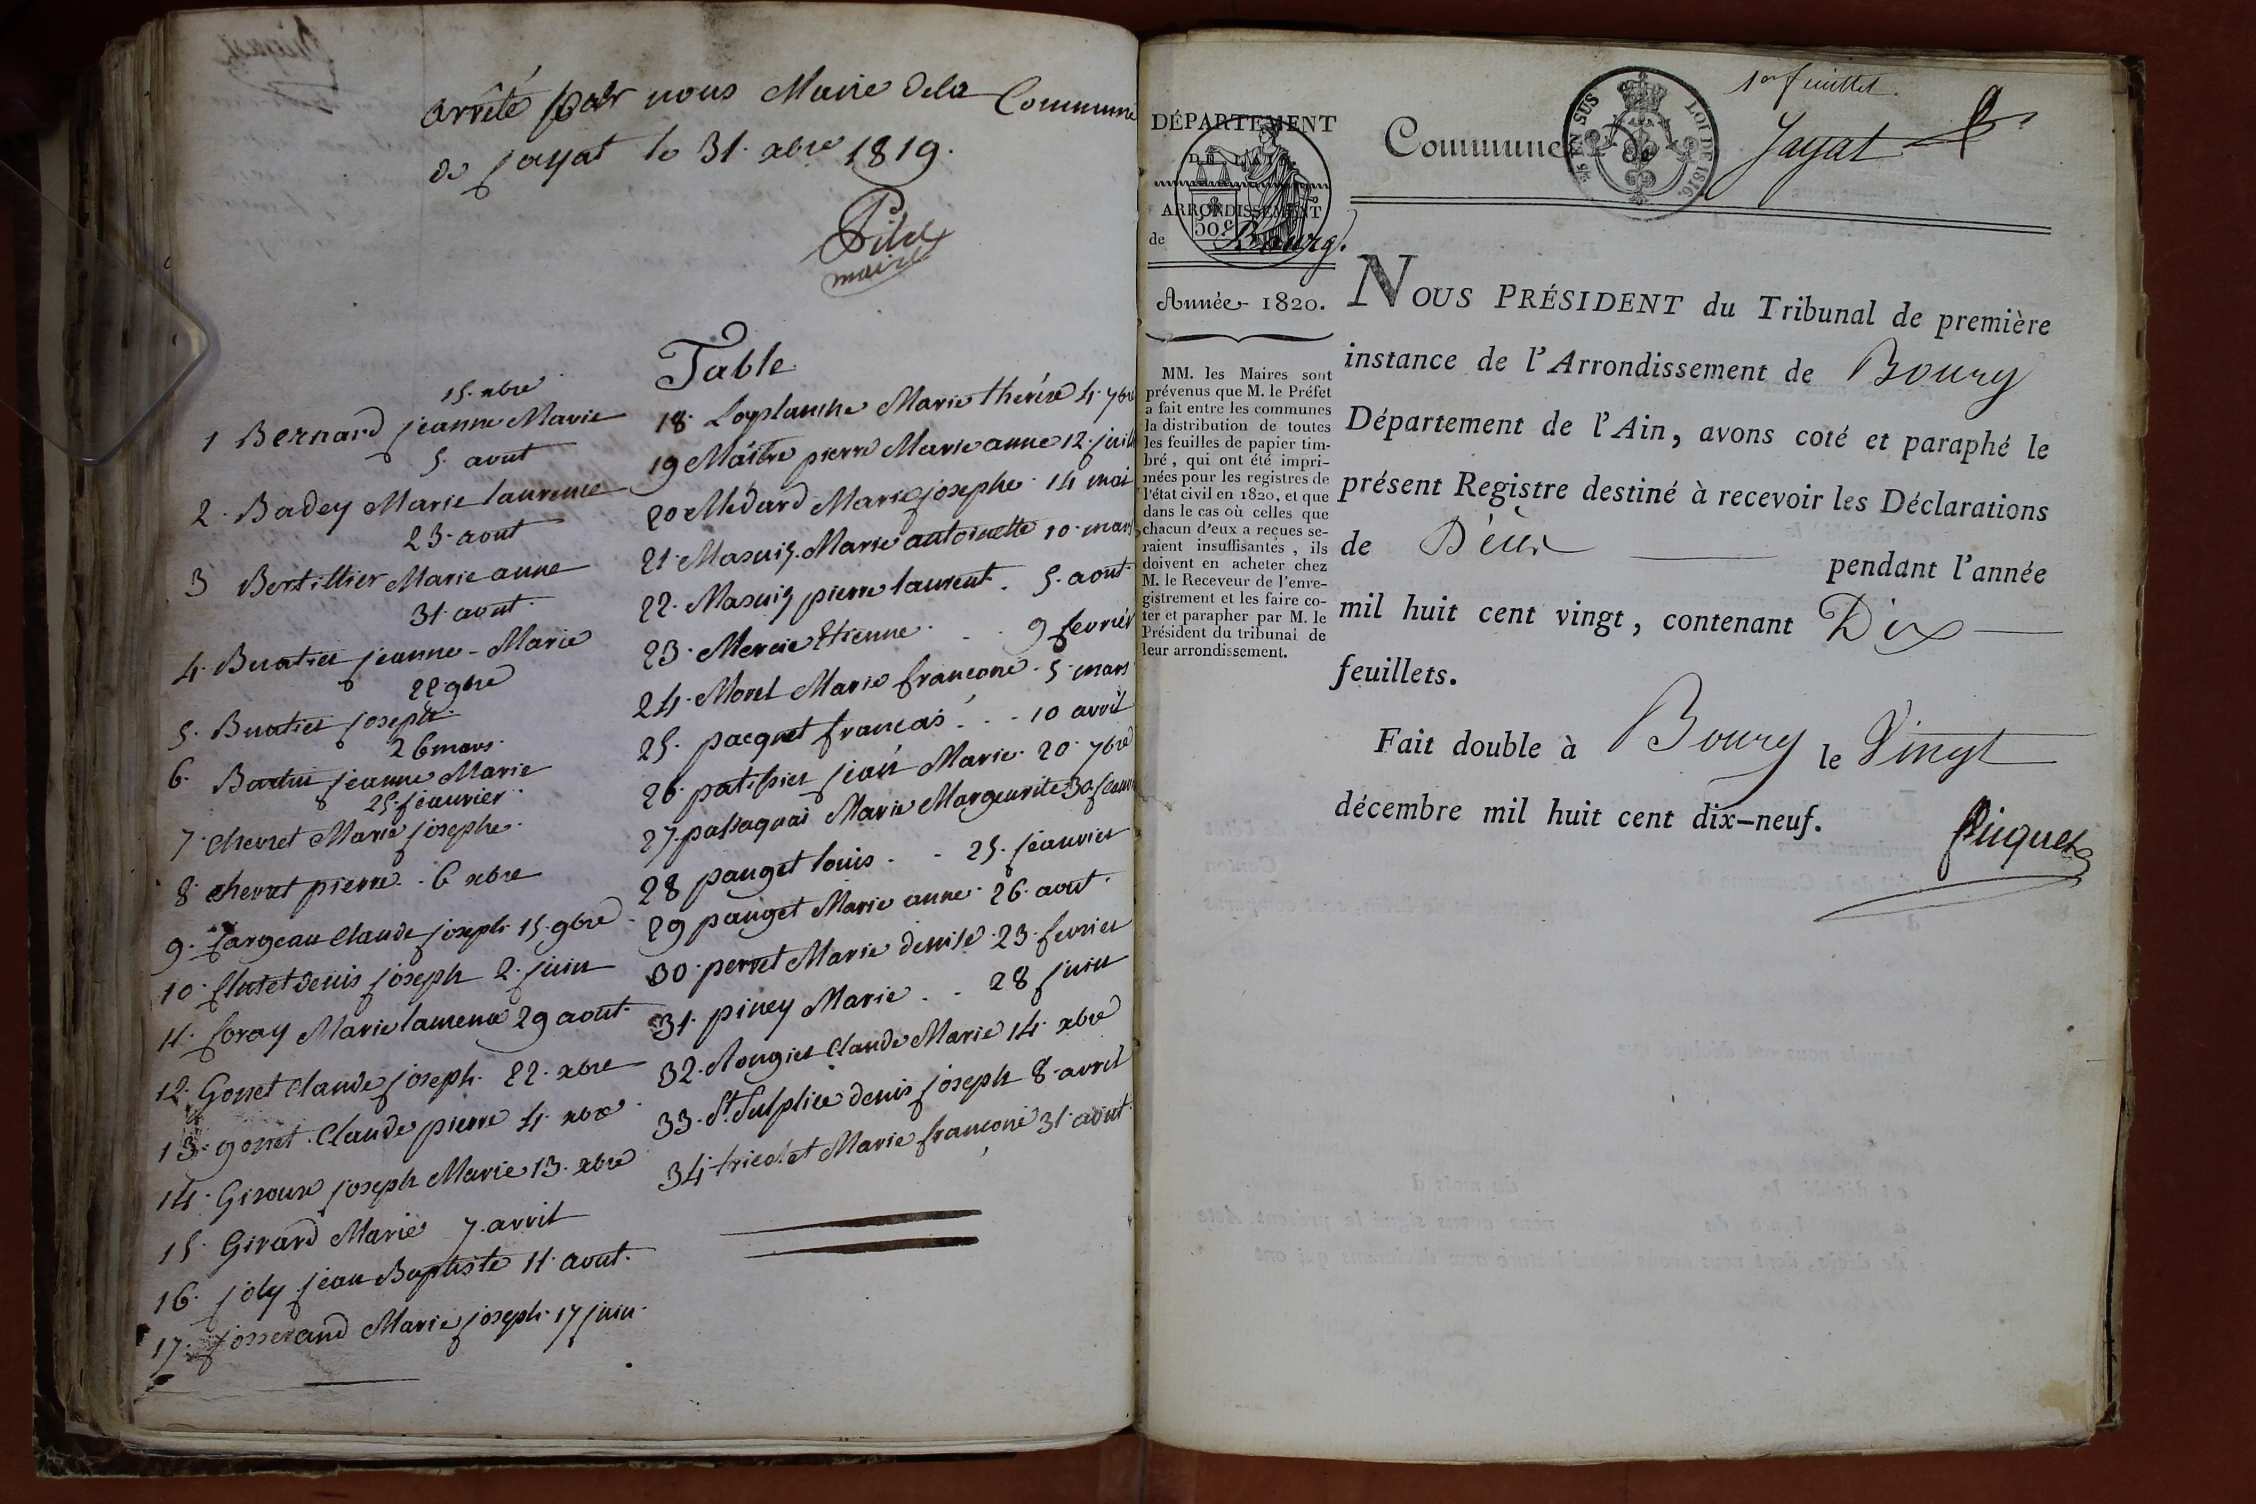 Arrêté par nous Maire dela Commune
de jayat le 31. xbre 1819.
maire
Table
15. xbre
1 Bernard jeanne Marie
5. aout
2. Badey Marie laurence
23. aout
3 Bertillier Marie anne
31. aout.
4. Buatier jeanne-Marie
22. 9bre
5. Buatier joseph.
26 mars.
6. jeanne Marie
25. jeanvier.
7. chevret Marie josephe.
8. chevret pierre. 6 xbre
9. fargeau Claude joseph. 15. 9bre
10. flutet denis joseph 2. juin
11. foray Marie laurence 29 aout.
12. Gonet Claude joseph. 22. xbre
13. gonet. Claude pierre 4. xbre
14. Giroux joseph Marie 13. xbre
15. Girard Marie 7. avril
16. joly jean Baptiste 11. aout.
17. josserand Marie joseph. 17 juin.
18. Laplanche Marie therése 4. 7bre
19 Maître pierre Marie anne 12. juill
20 Médard Marie josephe. 14 mai
21. Masuiz Marie antoinette 10. mars
22. Masuiz pierre laurent. 5. aout
23. Mercie Etienne. . . 9 fevrier
24. Morel Marie francone. 5. mars
25. pacquet francois. . . 10 avril
26. patissier jean Marie. 20. 7bre
27. passaquai Marie Margeurite 30.
28 pauget louis. . 25. jeanvier
29 pauget Marie anne. 26. aout.
30. perret Marie denise. 23. fevrier
31. piney Marie. . 28 juin
32. Rougier Claude Marie 14. xbre
33. St. Sulplice denis joseph 8. avril
34. tricolet Marie francone 31. aout.
DÉPARTEMENT
DE L'AIN.
ARRONDISSEMENT
50c
de Bourg.
Année 1820.
MM. les Maires sont
prévenus que M. le Préfet
a fait entre les communes
la distribution de toutes
les feuilles de papier tim-
bré, qui ont été impri-
mées pour les registres de
l'état civil en 1820, et que
dans le cas où celles que
chacun d'eux a reçues se-
raient insuffisantes, ils
doivent en acheter chez
M. le Receveur de l'enre-
gistrement et les faire co-
ter et parapher par M. le
Président du tribunal de
leur arrondissement.
1er feuillet.
Commune Jayat
EN SUS LOI DE 1816.
NOUS PRÉSIDENT du Tribunal de première
instance de l'Arrondissement de Bourg
Département de l'Ain, avons coté et paraphé le
présent Registre destiné à recevoir les Déclarations
de Décès pendant l'année
mil huit cent vingt, contenant Dix
feuillets.
Fait double à Bourg le Vingt
décembre mil huit cent dix-neuf.